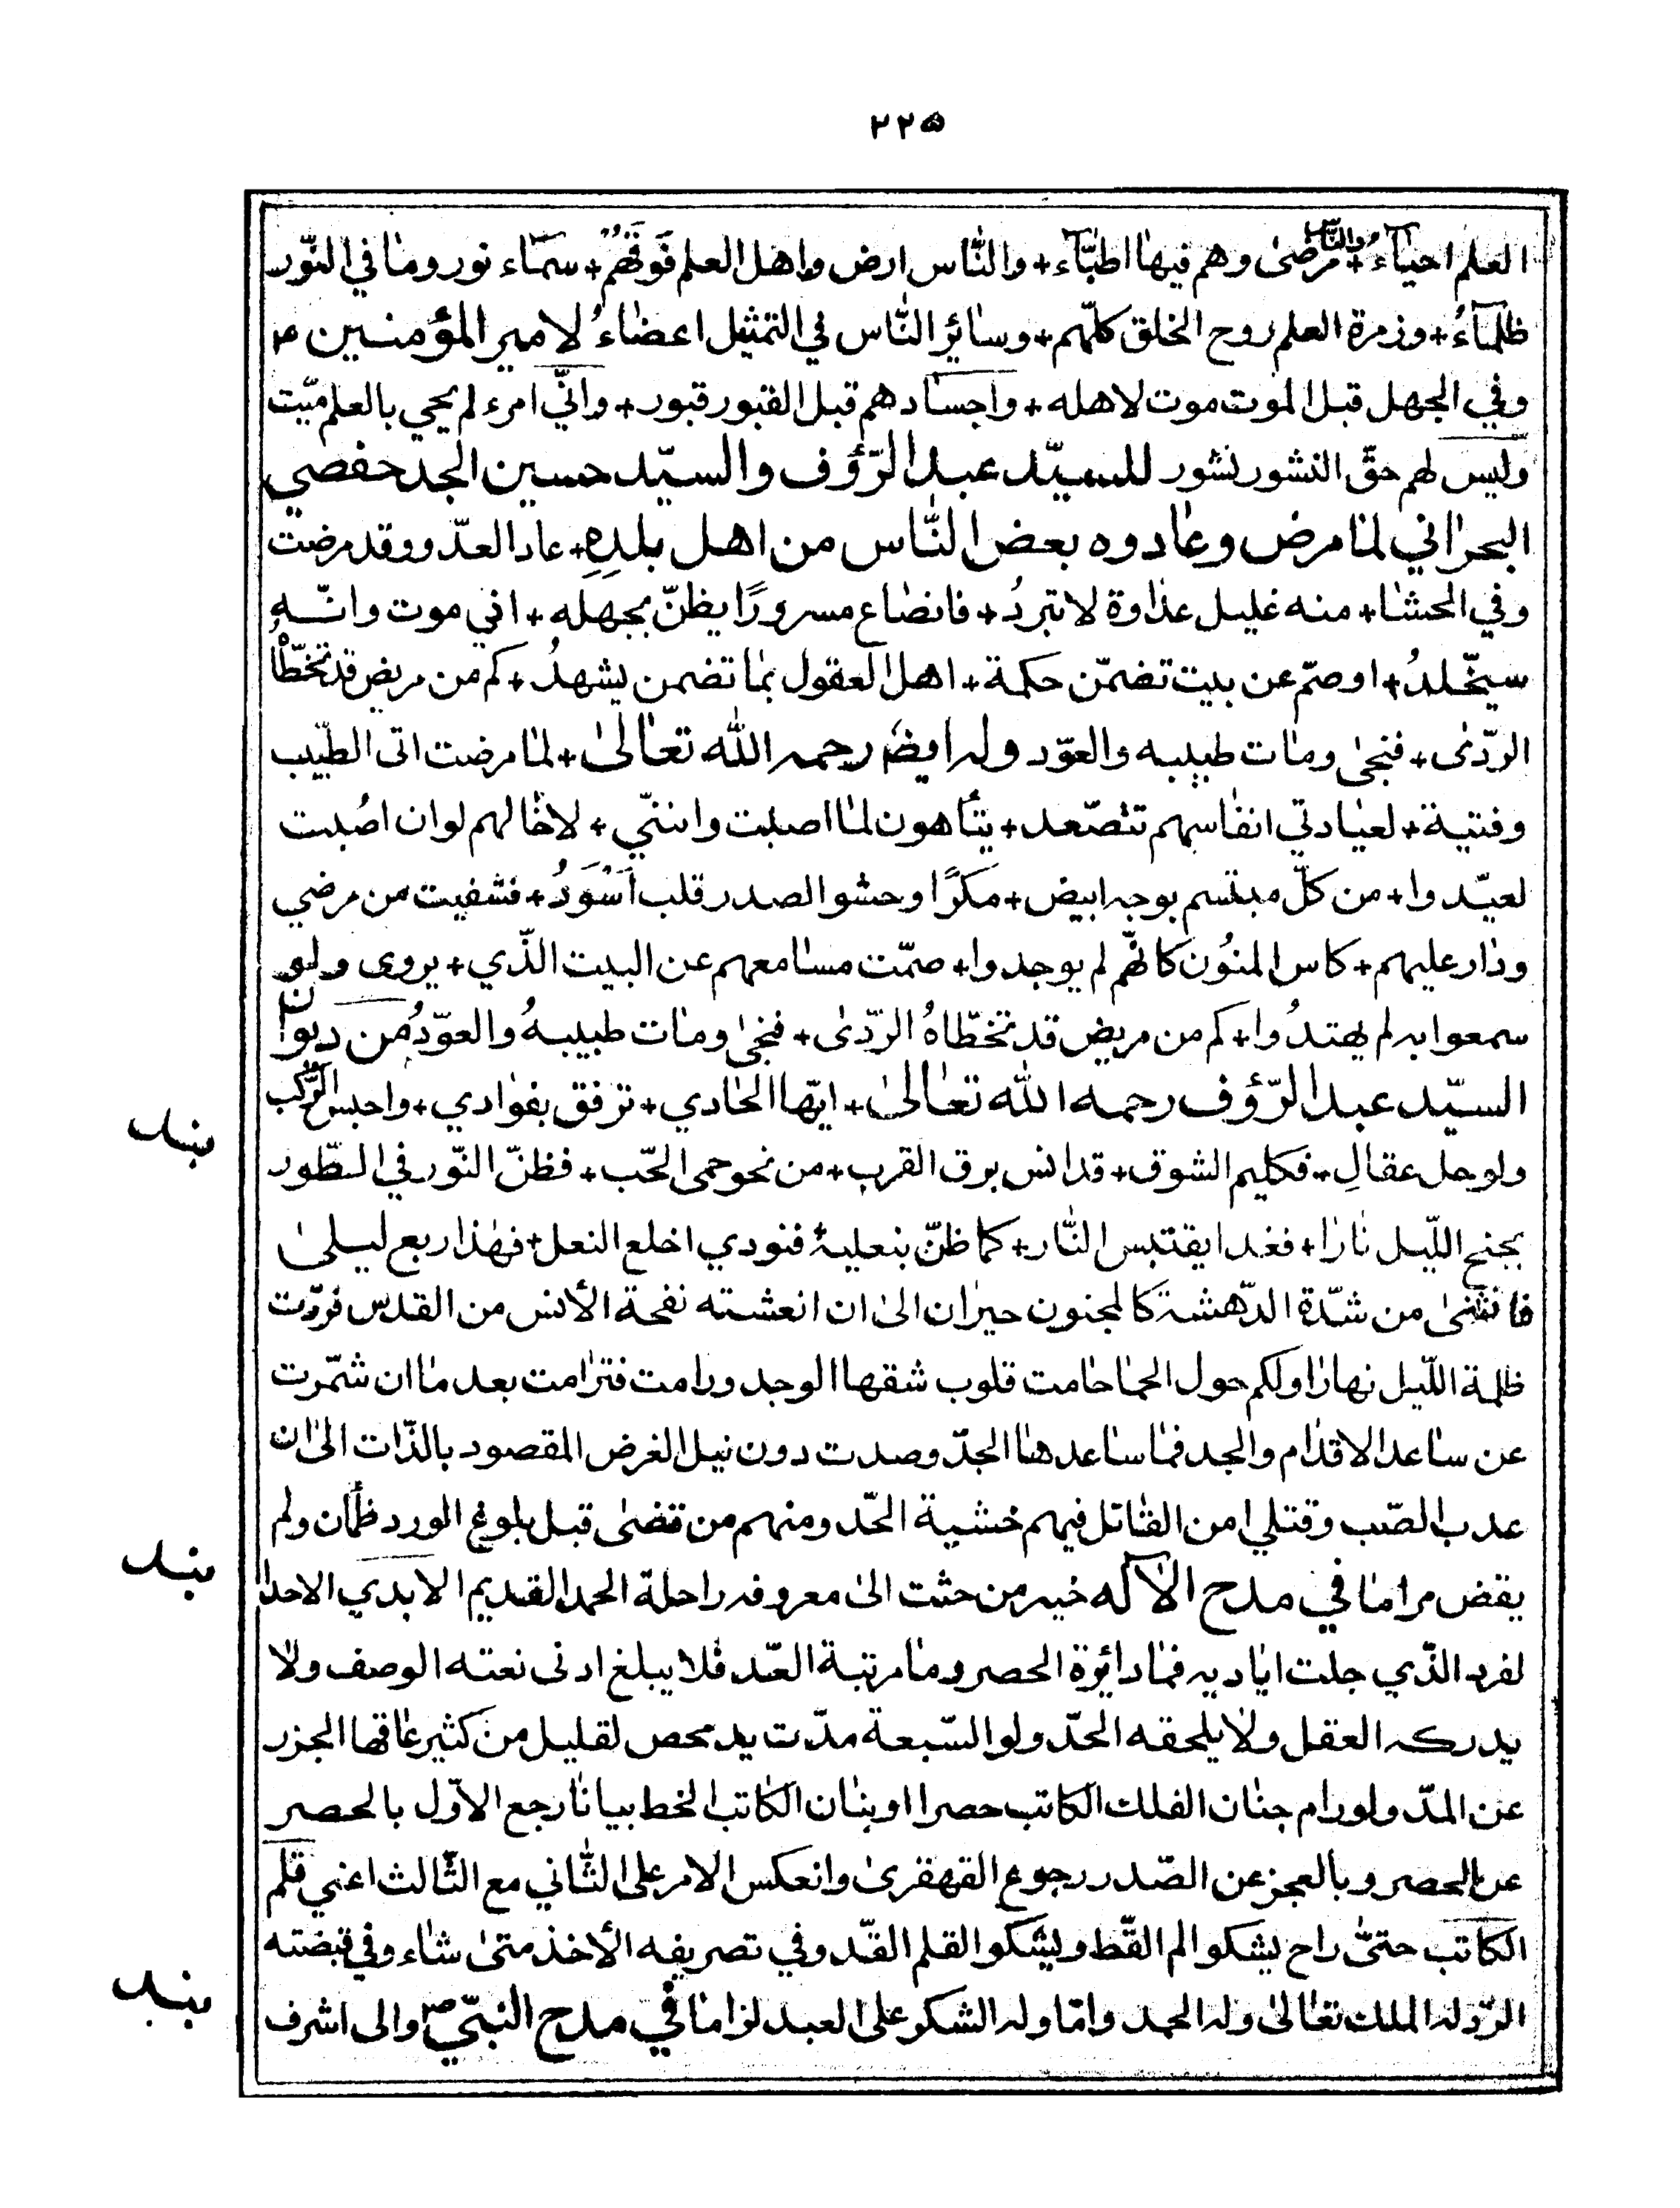 ٢٢٥
العلم احيٰآءُ + والنّاس مرضىٰ وهم فيهٰا اطبّآء + والنّٰاس ارض واهل العلم فَوقَهُمْ + سمّاء نور ومٰا في النّور
ظلمآءُ + وزمرة العلم روح الخلق كلّهم + وسٰائر النّٰاس في التمثيل اعضٰاءُ لامير المؤمنين ع
وفي الجهل قبل الموت موت لاهله + واجسٰادهم قبل القبور قبور + وانّي امرء لم يحي بالعلم ميّت
وليس لهم حقّ النشور نشور للسيّد عبد الرّؤف والسيّد حسين الجدحفصي
البحرٰاني لمٰا مرض وعٰادوه بعض النّٰاس من اهل بلدِهِ + عاد العدّو وقد مرضت
وفي الحشٰا + منه غليل عدٰاوة لا تبردُ + فانصٰاع مسرورًا يظنّ بجهله + اني موت وانّه
سيخّلدُ + او صمّ عن بيت تضمّن حكمة + اهل العقول بمٰا تضمن يشهدُ + كم من مريض قد تخطّاهُ
الرّدىٰ + فنجىٰ ومٰات طبيبه والعوّد وله ايضً رحمه اللّٰه تعٰالىٰ + لمٰا مرضت اتى الطّبيب
وفتية + لعيٰادتي انفٰاسهم تتصّعد + يتأهون لمٰا اصبت وانني + لاخٰالهم لو ان اصُبت
لعيّدوا + من كلّ مبتسم بوجه ابيض + مكرًا وحشو الصدر قلب اَسْوَدُ + فشفيت من مرضي
ودٰار عليهم + كاس المنوُن كانّهم لم يوجدوا + صمّت مسٰامعهم عن البيت الذّي + يروى ولو
سمعوا به لم يهتدُوا + كم من مريض قد تخطّاهُ الرّدىٰ + فنجىٰ ومٰات طبيبهُ والعوّدُ من ديوٰان
السيّد عبد الرّؤف رحمه اللّٰه تعٰالىٰ + ايّها الحٰادي + ترفق بفوٰادي + واحبس الرّكب
بند
ولو حل عقالِ + فكليم الشوق + قد انس برق القرب + من نحو حمى الحّب + فظنّ النّور في الطّور
بجنح اللّيل نٰارٰا + فغدا يقتبس النّٰار + كما ظنّ بنعليهُ فنودي اخلع النعل + فهٰذا ربع ليلىٰ
فانثنىٰ من شدّة الدّهشة كالمجنون حيرٰان الىٰ ان انعشته نفحة الأنس من القدس فردّت
ظلمة اللّيل نهارٰا ولكم حول الحمٰا حٰامت قلوب شقها الوجد ورامت فترٰامت بعد مٰا ان شمّرت
عن سٰاعد الاقدٰام والجد فمٰا سٰاعدهٰا الجدّ وصدت دون نيل الغرض المقصود بالذّات الىٰ ان
عدب الصّب وقتلي امن القٰاتل فيهم خشية الحّد ومنهم من قضىٰ قبل بلوغ الورد ظمأن ولم
يقض مرامٰا في مدح الاٰله خير من حثت الىٰ معروفه راحلة الحمد القديم الابدي الاحد
بند
لفرد الذّي جلت ايٰاديه فمٰا دائرة الحصر ومٰا مرتبة العّد فلا يبلغ ادنى نعته الوصف ولاٰ
يدركه العقل ولاٰ يلحقه الحدّ ولو السّبعة مدّت يد محص لقليل من كثير عٰاقها الجزر
عن المدّ ولو رام جنٰان الفلك الكاتب حصرا او بنٰان الكٰاتب الخط بيانٰا رجع الاوّل بالحصر
عن الحصر وبالعجز عن الصّدر رجوع القهقرىٰ وانعكس الامر على الثّٰاني مع الثّالث اعني قلم
الكاتب حتىّٰ راح يشكو الم القّط ويشكو القلم القّد وفي تصريفه الأخذ متىٰ شٰاء وفي قبضته
الرّد له الملك تعٰالىٰ وله الحمد وامّا وله الشكر على العبد لزامٰا في مدح النبيّ ص والى اشرف
بند